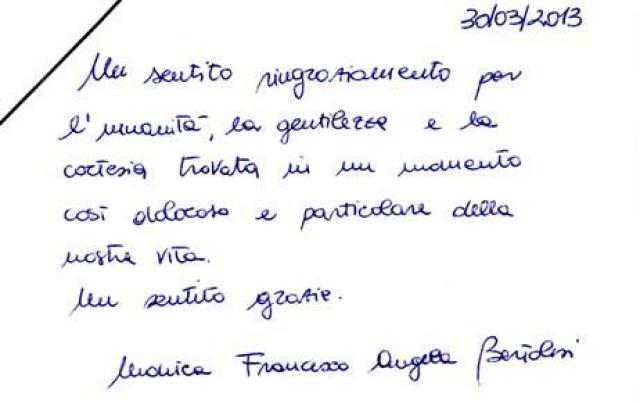 30/03/2013
Un sentito ringraziamento per
l'umanità, la gentilezza e la
cortesia trovata in un momento
così doloroso e particolare della
nostra vita.
Un sentito grazie.
Monica Francesco Angela Bertolesi